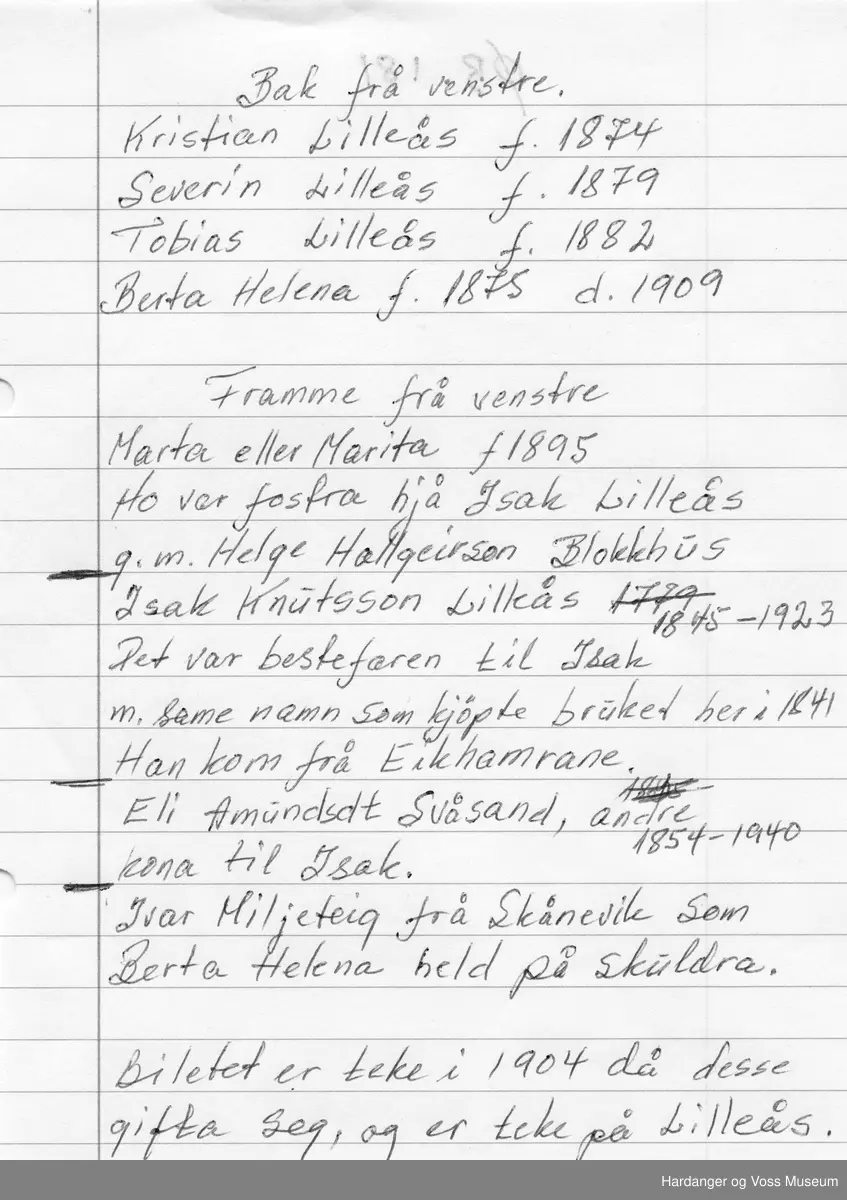 Bak frå venstre.
Kristian Lilleås f. 1874
Severin Lilleås f. 1879
Tobias Lilleås f. 1882
Berta Helena f. 1875 d. 1909
Framme frå venstre
Marta eller Marita f 1895
Ho var fostra hjå Isak Lilleås
g. m. Helge Hallgeirson Blokkhus
Isak Knutsson Lilleås 1779
1845-1923
Det var bestefaren til Isak
m. same namn som kjöpte bruket her i 1841
Han kom frå Eikhamrane.
Eli Amundsdt Svåsand, andre
1854-1940
kona til Isak.
Ivar Miljeteig frå Skånevik som
Berta Helena held på skuldra.
Biletet er teke i 1904 då desse
gifta seg, og er teke på Lilleås.
Hardanger og Voss Museum